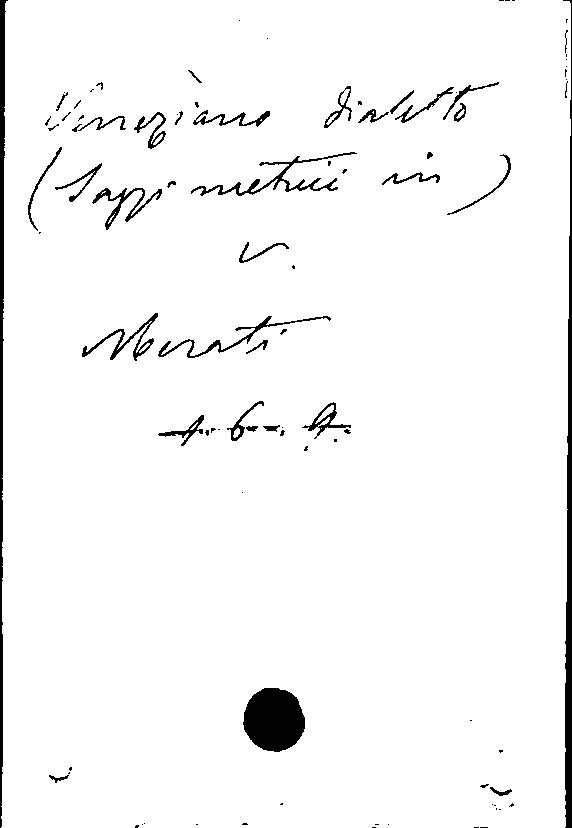 Veneziano dialetto
(Saggi metrici in)
v.
Merati